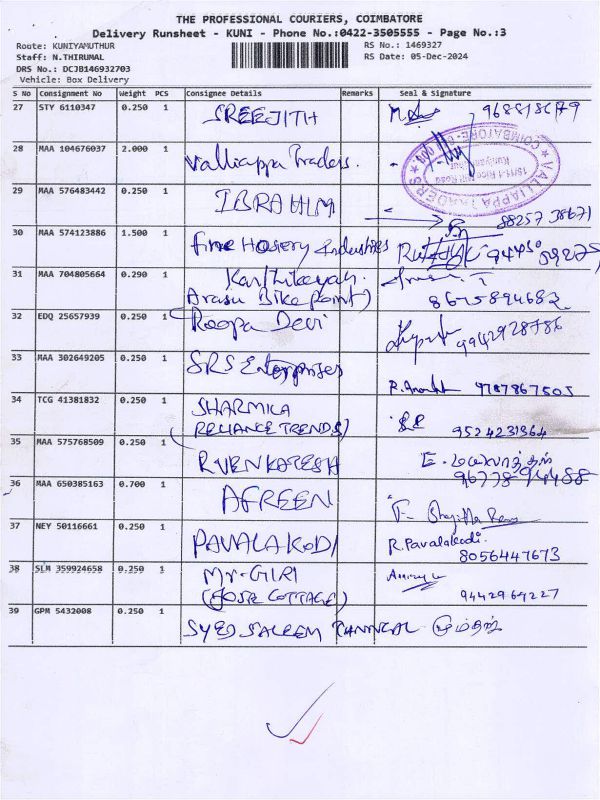 THE PROFESSIONAL COURIERS, COIMBATORE
Delivery Runsheet - KUNI - Phone No.:0422-3505555 - Page No.:3
Route: KUNIYAMUTHUR RS No.: 1469327
Staff: N.THIRUMAL RS Date: 05-Dec-2024
DRS No.: DCJB146932703
Vehicle: Box Delivery
S No Consignment No Weight PCS Consignee Details Remarks Seal & Signature
27 STY 6110347 0.250 1 SREEJITH
28 MAA 104676037 2.000 1 Valliappa Traders. VALLIAPPA TRADERS COIMBATORE
29 MAA 576483442 0.250 1 IBRAHIM 88257 38671
30 MAA 574123886 1.500 1 Fine Hosery Industries
31 MAA 704805664 0.290 1 Karthikeyan.
Arasu Bike point) 8675894682
32 EDQ 25657939 0.250 1 Roopa Devi 9942928786
33 MAA 302649205 0.250 1 SRS Enterprises 9787867505
34 TCG 41381832 0.250 1 SHARMILA
RELIANCE TRENDS) 9524231364
35 MAA 575768509 0.250 1 R.VENKATESH 96778 94488
36 MAA 650385163 0.700 1 AFREEN
37 NEY 50116661 0.250 1 PAVALAKODI R.Pavalakodi.
8056447673
38 SLM 359924658 0.250 1 Mr. GIRI
(JOSH COTTAGE) 9442969227
39 GPM 5432008 0.250 1 SYED SALEEM